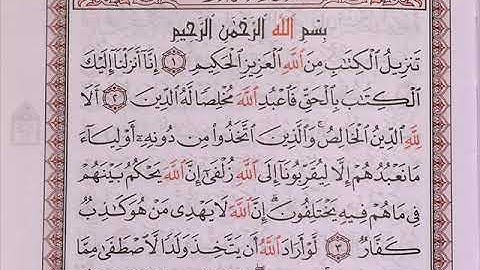 بِسْمِ اللَّهِ الرَّحْمَٰنِ الرَّحِيمِ
تَنزِيلُ الْكِتَابِ مِنَ اللَّهِ الْعَزِيزِ الْحَكِيمِ ١ إِنَّا أَنزَلْنَا إِلَيْكَ
الْكِتَابَ بِالْحَقِّ فَاعْبُدِ اللَّهَ مُخْلِصًا لَّهُ الدِّينَ ٢ أَلَا
لِلَّهِ الدِّينُ الْخَالِصُ وَالَّذِينَ اتَّخَذُوا مِن دُونِهِ أَوْلِيَاءَ
مَا نَعْبُدُهُمْ إِلَّا لِيُقَرِّبُونَا إِلَى اللَّهِ زُلْفَىٰ إِنَّ اللَّهَ يَحْكُمُ بَيْنَهُمْ
فِي مَا هُمْ فِيهِ يَخْتَلِفُونَ إِنَّ اللَّهَ لَا يَهْدِي مَنْ هُوَ كَاذِبٌ
كَفَّارٌ ٣ لَّوْ أَرَادَ اللَّهُ أَن يَتَّخِذَ وَلَدًا لَّاصْطَفَىٰ مِمَّا